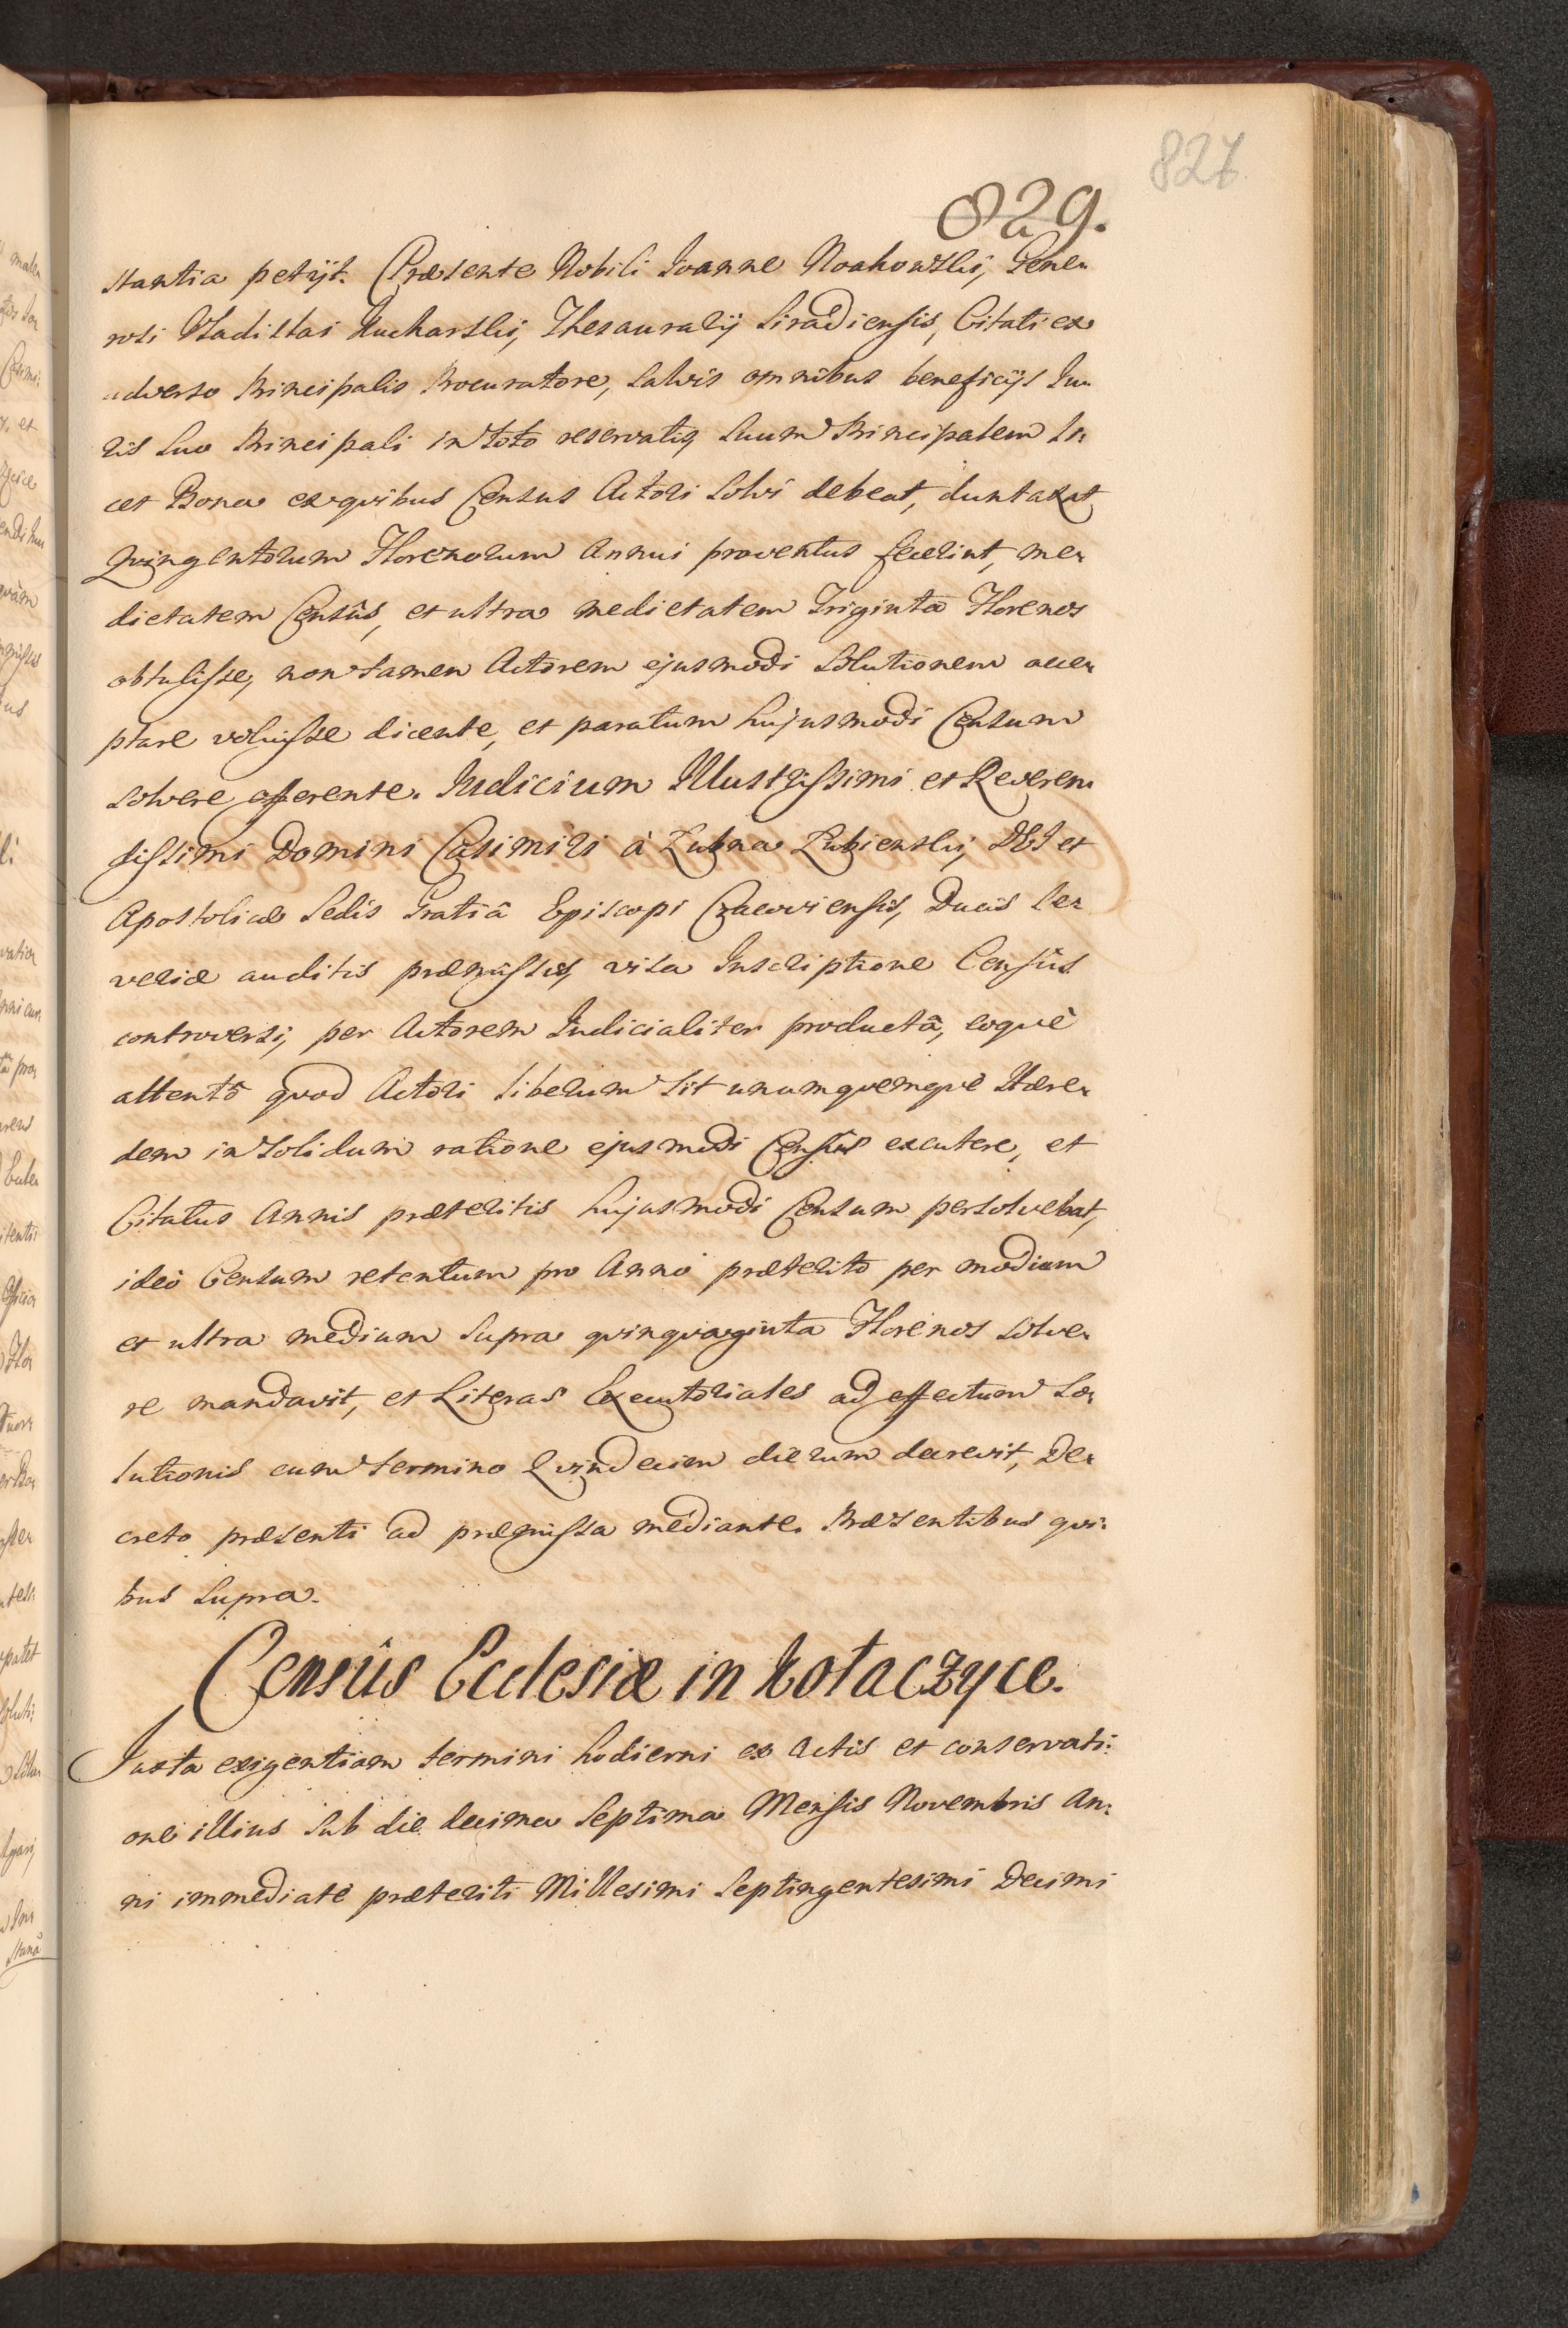 827.
829.
stantia petijt. Præsente Nobili Joanne Noakowski, Gene-
rosi Vladislai Kucharski, Thesaurarij Siradiensis, Citati ex
adverso Principalis Procuratore, salvis omnibus beneficijs Ju-
ris suo Principali in toto reservatis, suum Principalem li-
cet Bona ex quibus Census Actori solvi debeat, duntaxat
Quingentorum Florenorum annui proventus fecerint, me-
dietatem Censûs, et ultra medietatem Triginta Florenos
obtulisse, non tamen Actorem ejusmodi solutionem acce-
ptare voluisse dicente, et paratum hujusmodi Censum
solvere offerente. Judicium Illustrissimi et Reveren-
dissimi Domini Casimiri à Lubna Lubienski, DEI et
Apostolicæ Sedis Gratiâ Episcopi Cracoviensis, Ducis Se-
veriæ auditis præmissis, visa Inscriptione Censûs
controversi, per Actorem Judicialiter productâ, eoquè
attentô quod Actori liberum sit unumquemque Hære-
dem in solidum ratione ejusmodi Censûs excutere, et
Citatus Annis præteritis hujusmodi Censum persolvebat,
ideò Censum retentum pro Anno præterito per medium
et ultra medium supra quinquaginta Florenos solve-
re mandavit, et Literas Executoriales ad effectum So-
lutionis cum termino Quindecim dierum decrevit, De-
creto præsenti ad præmissa mediante. Præsentibus qui-
bus supra.
Censûs Ecclesiæ in Kołaczyce.
Juxta exigentiam termini hodierni ex Actis et conservati-
one illius sub die decima Septima Mensis Novembris An-
ni immediatè præteriti Millesimi Septingentesimi Decimi